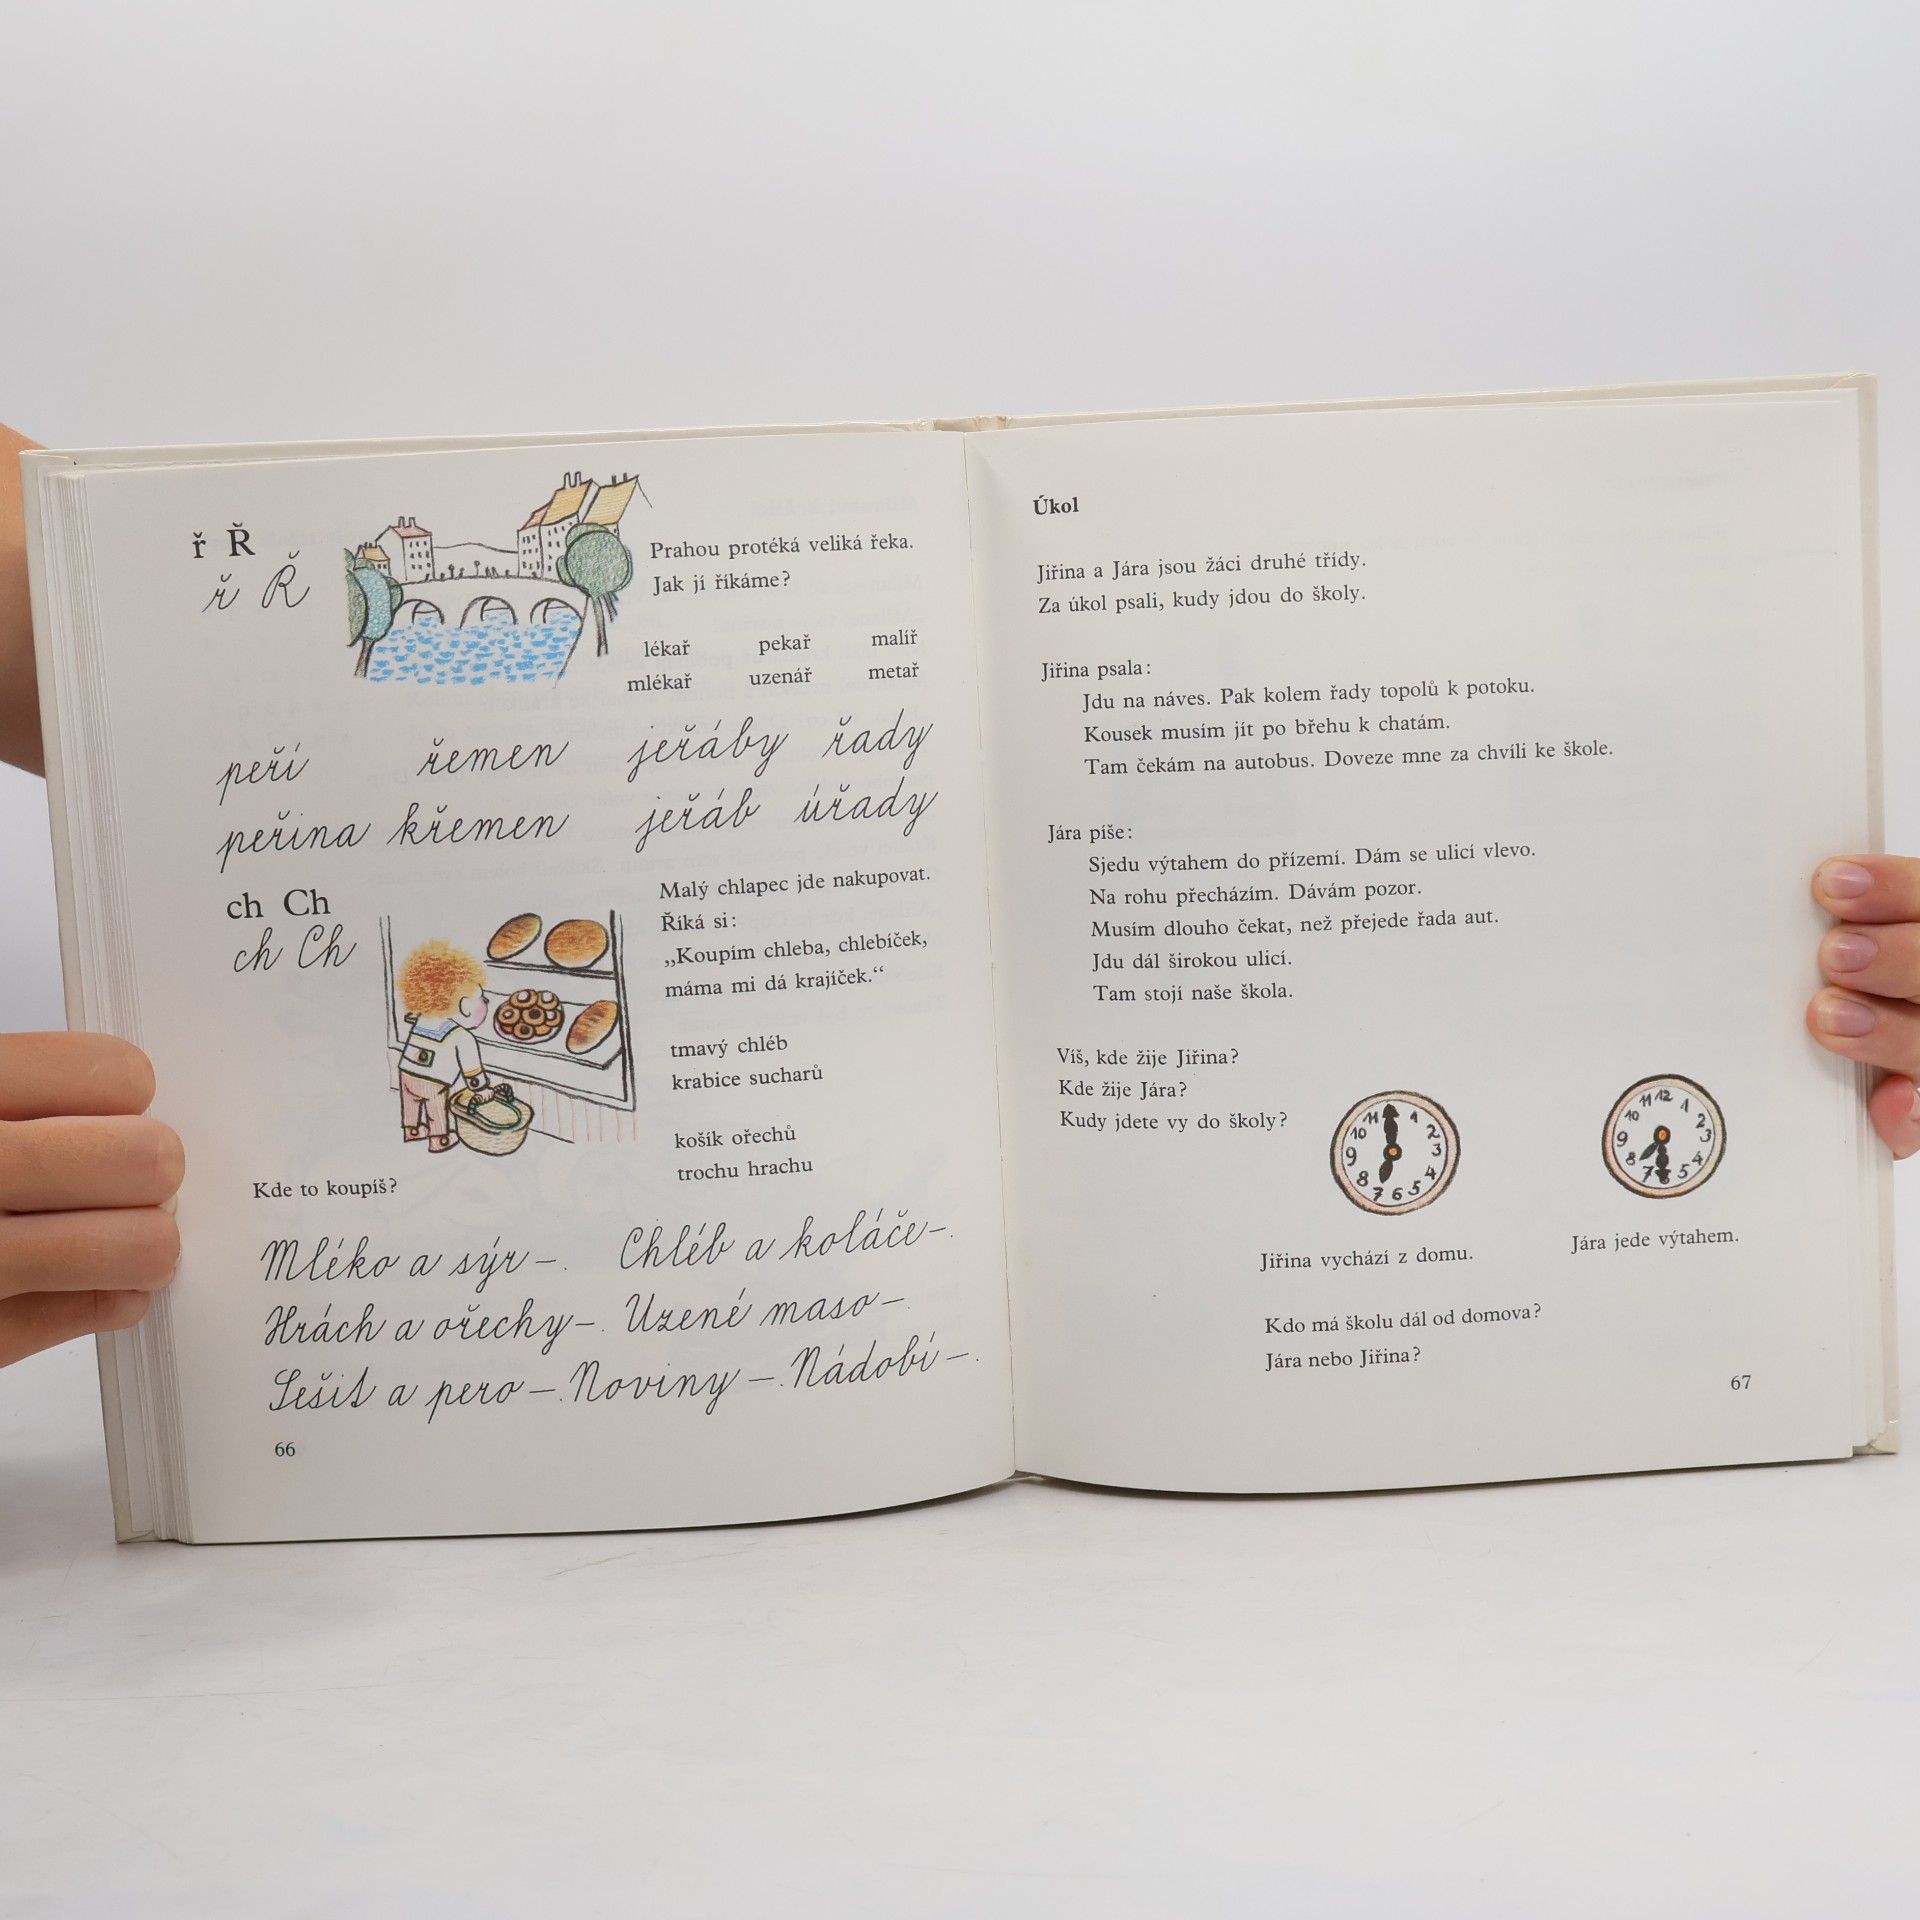 ř Ř
ř Ř
Prahou protéká veliká řeka.
Jak jí říkáme?
lékař pekař malíř
mlékař uzenář metař
peří řemen jeřáby řady
peřina křemen jeřáb úřady
ch Ch
ch Ch
Malý chlapec jde nakupovat.
Říká si:
„Koupím chleba, chlebíček,
máma mi dá krajíček.“
tmavý chléb
krabice sucharů
košík ořechů
trochu hrachu
Kde to koupíš?
Mléko a sýr –. Chléb a koláče –.
Hrách a ořechy –. Uzené maso –.
Sešit a pero –. Noviny –. Nádobí –.
66
Úkol
Jiřina a Jára jsou žáci druhé třídy.
Za úkol psali, kudy jdou do školy.
Jiřina psala:
Jdu na náves. Pak kolem řady topolů k potoku.
Kousek musím jít po břehu k chatám.
Tam čekám na autobus. Doveze mne za chvíli ke škole.
Jára píše:
Sjedu výtahem do přízemí. Dám se ulicí vlevo.
Na rohu přecházím. Dávám pozor.
Musím dlouho čekat, než přejede řada aut.
Jdu dál širokou ulicí.
Tam stojí naše škola.
Víš, kde žije Jiřina?
Kde žije Jára?
Kudy jdete vy do školy?
11 1 2 3 4 5 6 7 8 9 10
11 12 1 2 3 4 5 6 7 8 9 10
Jiřina vychází z domu.
Jára jede výtahem.
Kdo má školu dál od domova?
Jára nebo Jiřina?
67